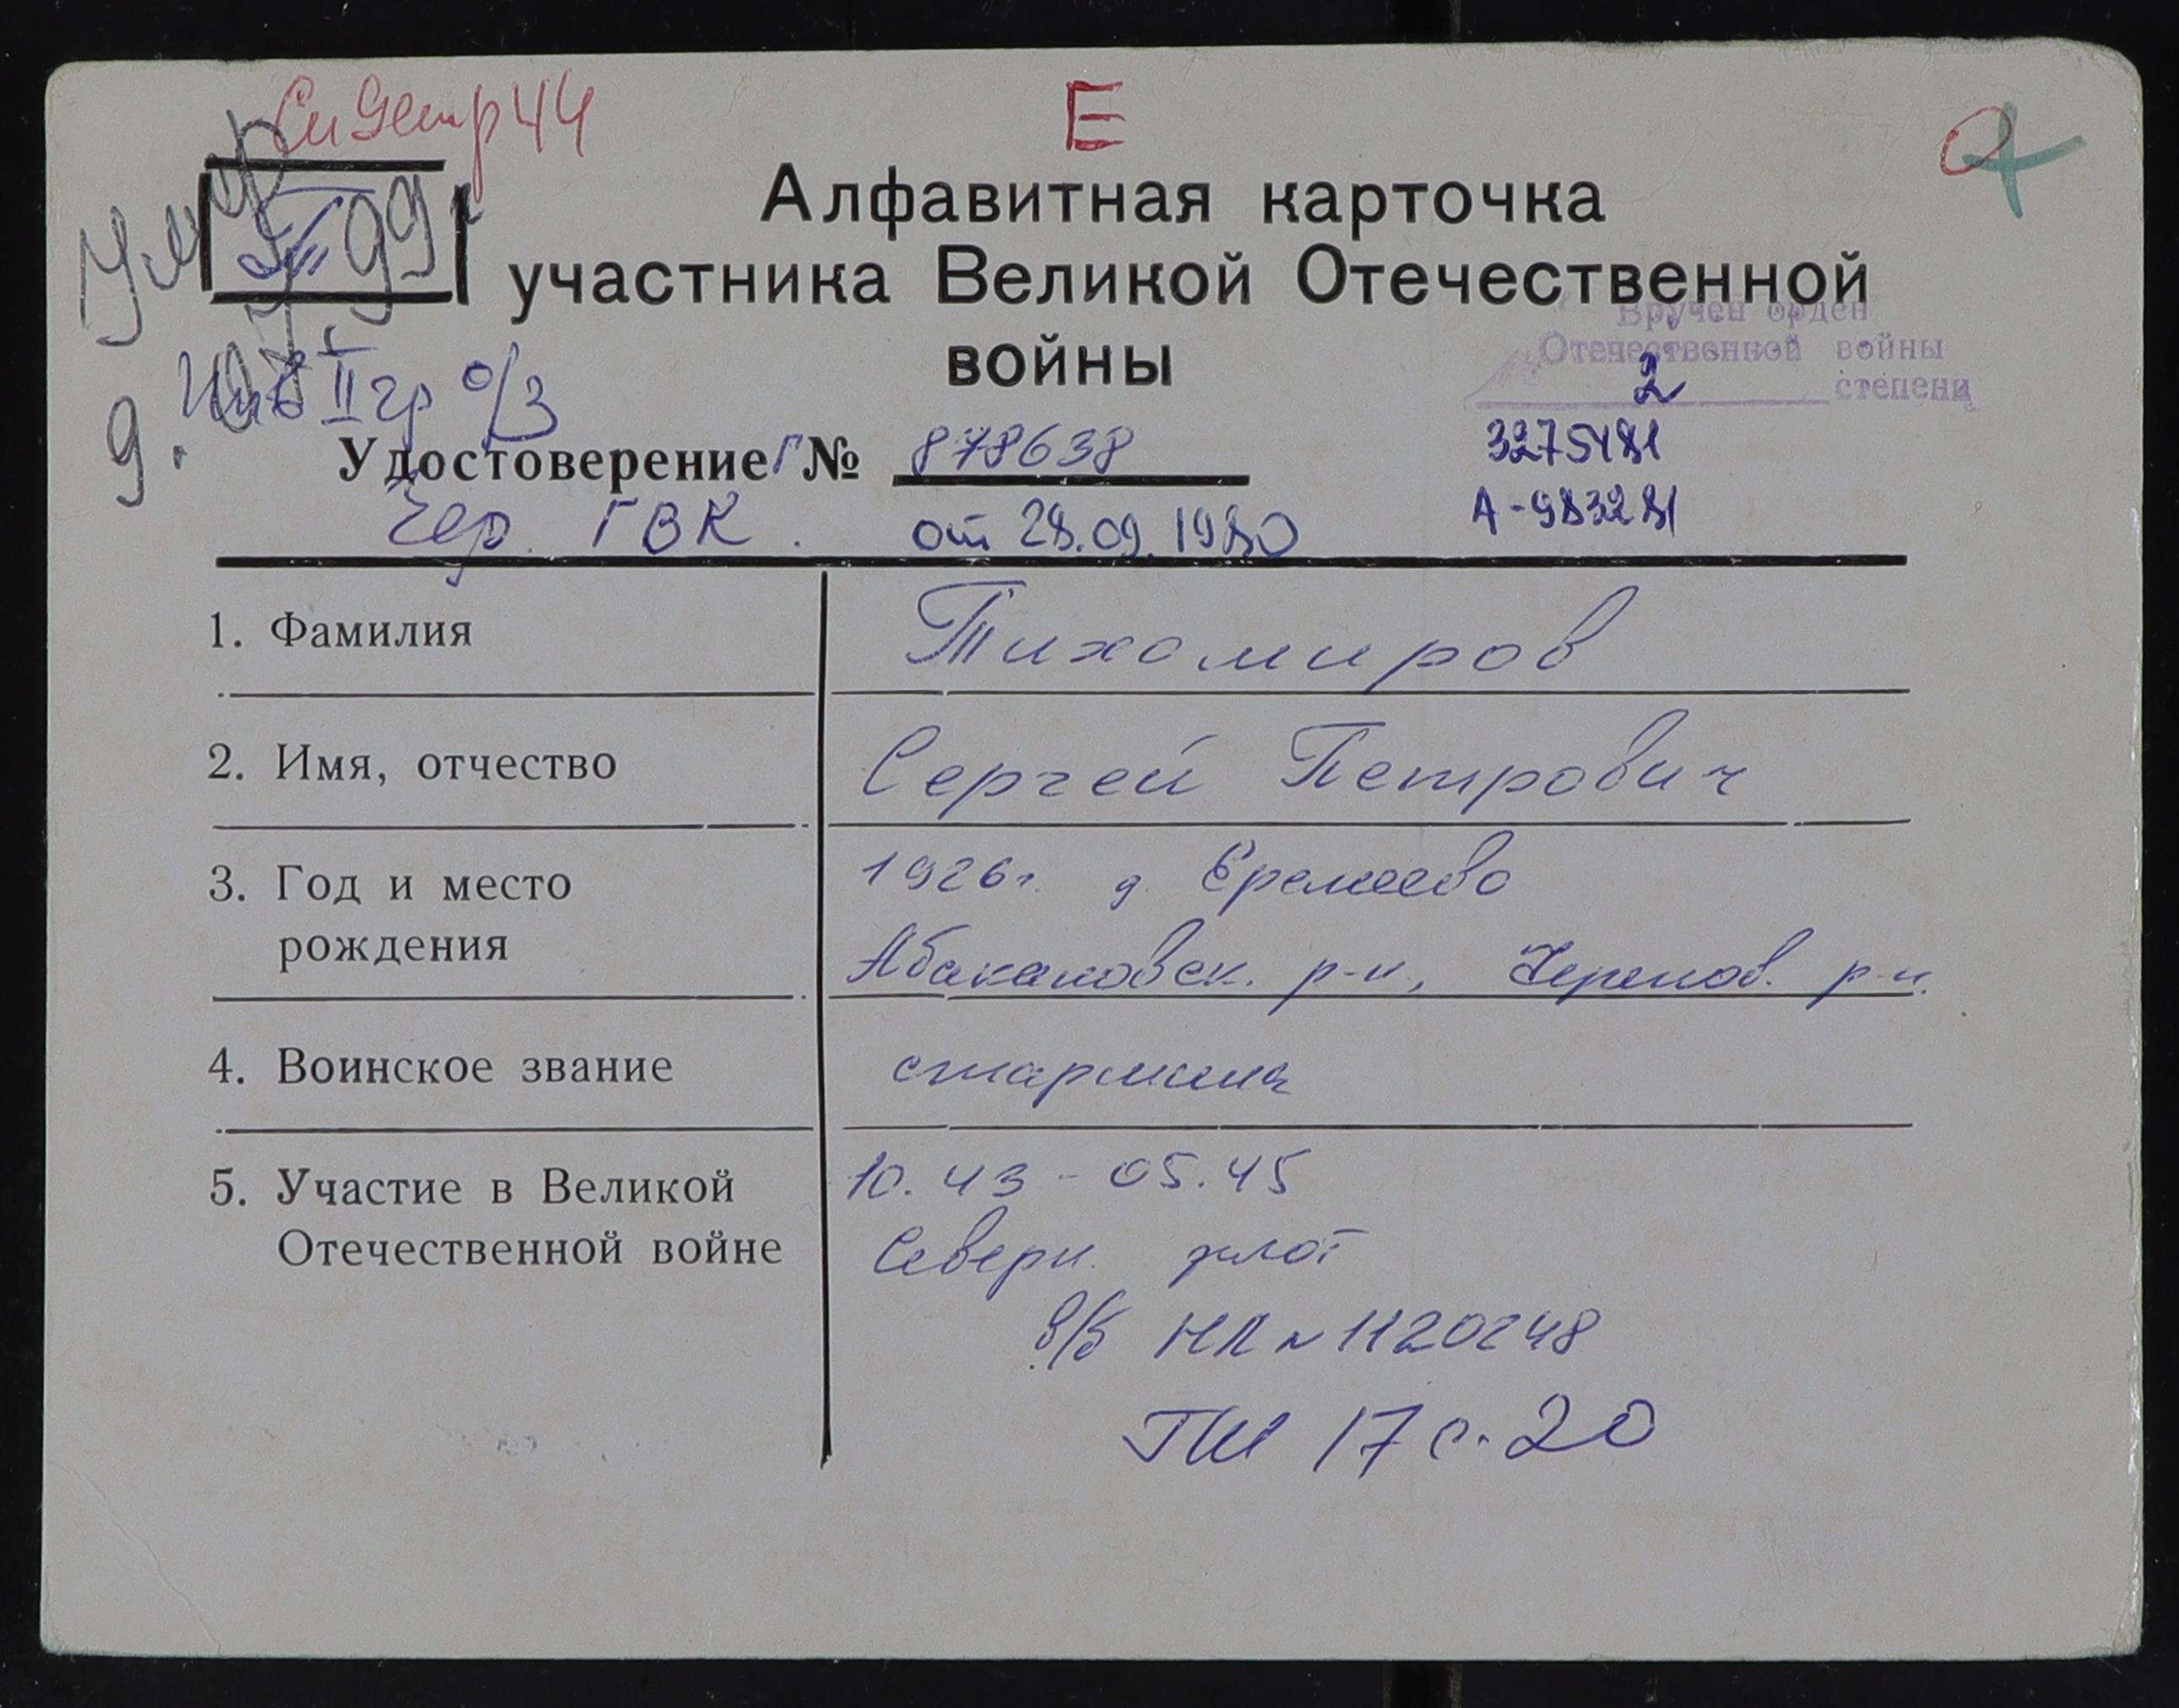 Е
Алфавитная карточка
участника Великой Отечественной
войны
Вручен орден
Отечественной войны
2 степени
3275481
Инв II гр о/з
Удостоверение Г № 878638
Чер. ГВК. от 28.09.1980
1. Фамилия Тихомиров
2. Имя, отчество Сергей Петрович
3. Год и место 1926г. д. Еремеево
рождения Абакановск. р-н, Черепов. р-н.
4. Воинское звание старшина
5. Участие в Великой 10.43 - 05.45
Отечественной войне Северн. флот
в/б НЛ № 1120248
ТШ 17 с. 20